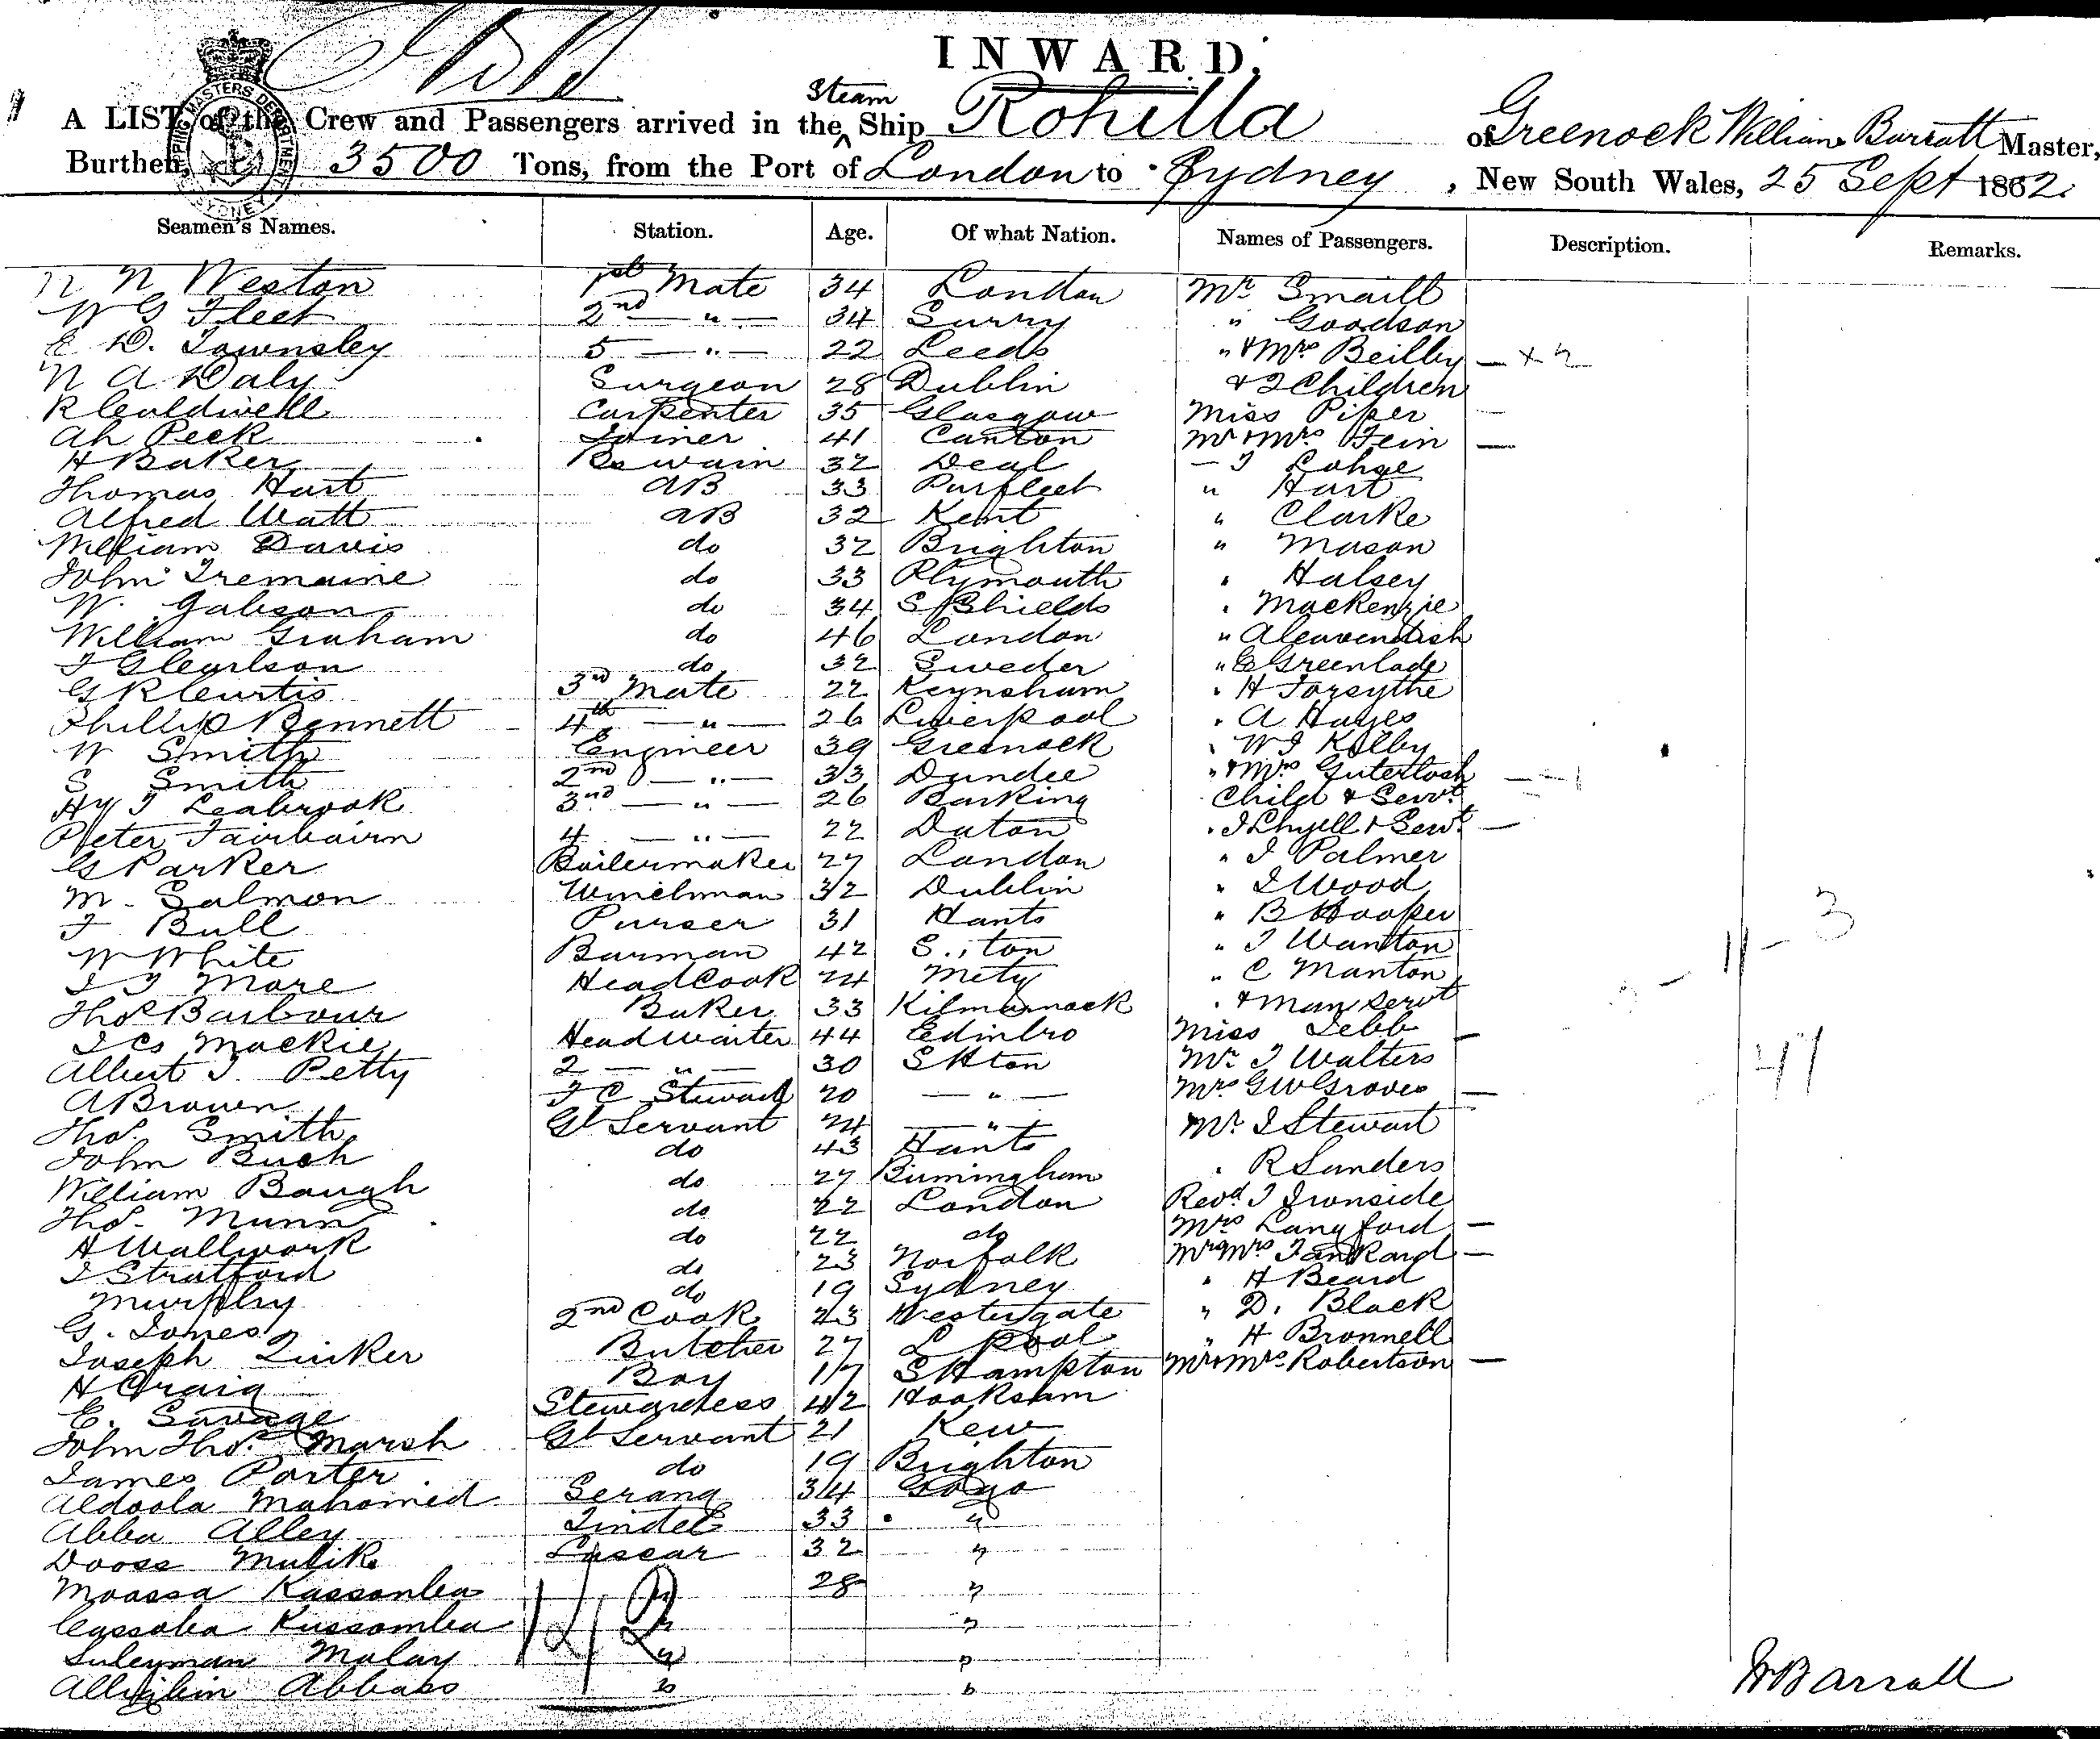 INWARD.
A LIST of the Crew and Passengers arrived in the Steam Ship Rohilla of Greenock William Barratt Master,
Burthen, 3500 Tons, from the Port of London to Sydney, New South Wales, 25 Sept 1882.
Seamen's Names. Station. Age. Of what Nation. Names of Passengers. Description. Remarks.
N Weston 1st Mate 34 London Mr Smaill
W G Fleet 2nd " 34 Surry " Goodson
E D. Townsley 5 " 22 Leeds " & Mrs Beilby
N A Daly Surgeon 28 Dublin & 2 Children
R Caldwell Carpenter 35 Glasgow Miss Piper
Ah Peck Joiner 41 Canton Mr & Mrs Fein
H Baker Bswain 32 Deal Lohse
Thomas Hart AB 33 Purfleet " Hart
Alfred Watt AB 32 Kent " Clarke
William Davis do 32 Brighton " Mason
John Tremaine do 33 Plymouth " Halsey
W. Gabson do 34 S Shields " Mackenzie
William Graham do 46 London " A Cavendish
do 32 Sweder " Greenlade
G R Curtis 3rd Mate 22 Keynsham " H Forsythe
Phillip Bennett 4th " 26 Liverpool " A Hayes
W Smith Engineer 39 Greenock " W J Kilby
S Smith 2nd " 33 Dundee " & Mrs
Hy J Leabrook 3rd " 26 Barking Child & Servt
Peter Fairbairn 4 " 22 Daton & Servt
G Parker Boilermaker 27 London " J Palmer
M. Salmon Winchman 32 Dublin " J Wood
F. Bull Purser 31 Hants " B Hooper
W White Barman 42 S.:ton " J Wanton
J J More Head Cook 24 Metz " C Manton
Thos Barbour Baker 33 Kilmarnock " & Man Servt
Jas Mackie Head Waiter 44 Edinbro Miss Tebb
Albert J. Petty 2 " 30 SHton Mr J Walters
A Brown F C Steward 20 " Mrs G W Groves
Thos. Smith Gl Servant 24 " Mr. J Stewart
John Buch do 43 Hants
William Baugh do 27 Birmingham " R Sanders
Thos. Munn do 22 London Revd. J Ironside
H Wallwork do 22 do Mrs Langford
J Stratford do 23 Norfolk Mr & Mrs Tankard
Murphy do 19 Sydney " H Beard
G. Jones 2nd Cook 23 Westergate " D. Black
Joseph Linker Butcher 27 L pool " H Bronnell
H Craig Boy 17 SHampton Mr & Mrs Robertson
E. Savage Stewardess 42 Hooksam
John Thos. Marsh Gl Servant 21 Kew
James Porter do 19 Brighton
Aldoola Mahomed Serang 34 Gogo
Abba Alley Tindel 33 "
Dooss Mulik Lascar 32 "
Moossa Kassomba " 28 "
Cassoba Kussomba " "
Suleyman Malay " "
Abbass " "
11 - 3
47
W Barratt